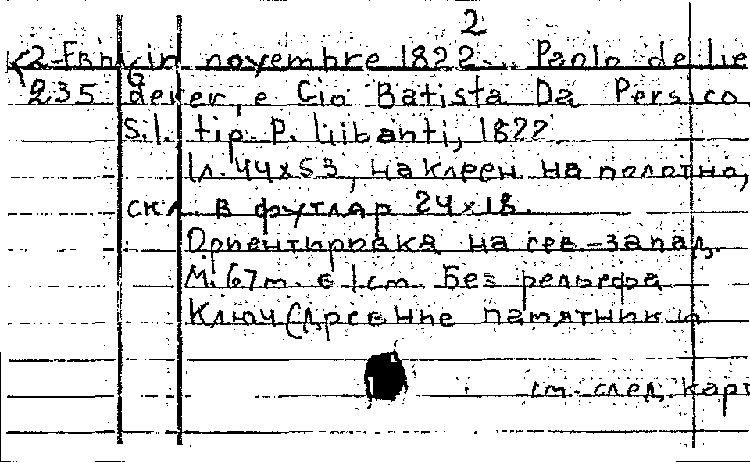 2
К2-Fbn(in novembre 1822. Paolo de lie
235 derer, e Gio Batista Da Persico
S.l. tip. P. Libanti, 1822
1 л. 44х53, наклеен на полотно,
скл. в футляр 24х18.
Ориентировка на сев.-запад.
М. 67m. в 1cm. Без рельефа
Ключ (древние памятники
см. след. карт